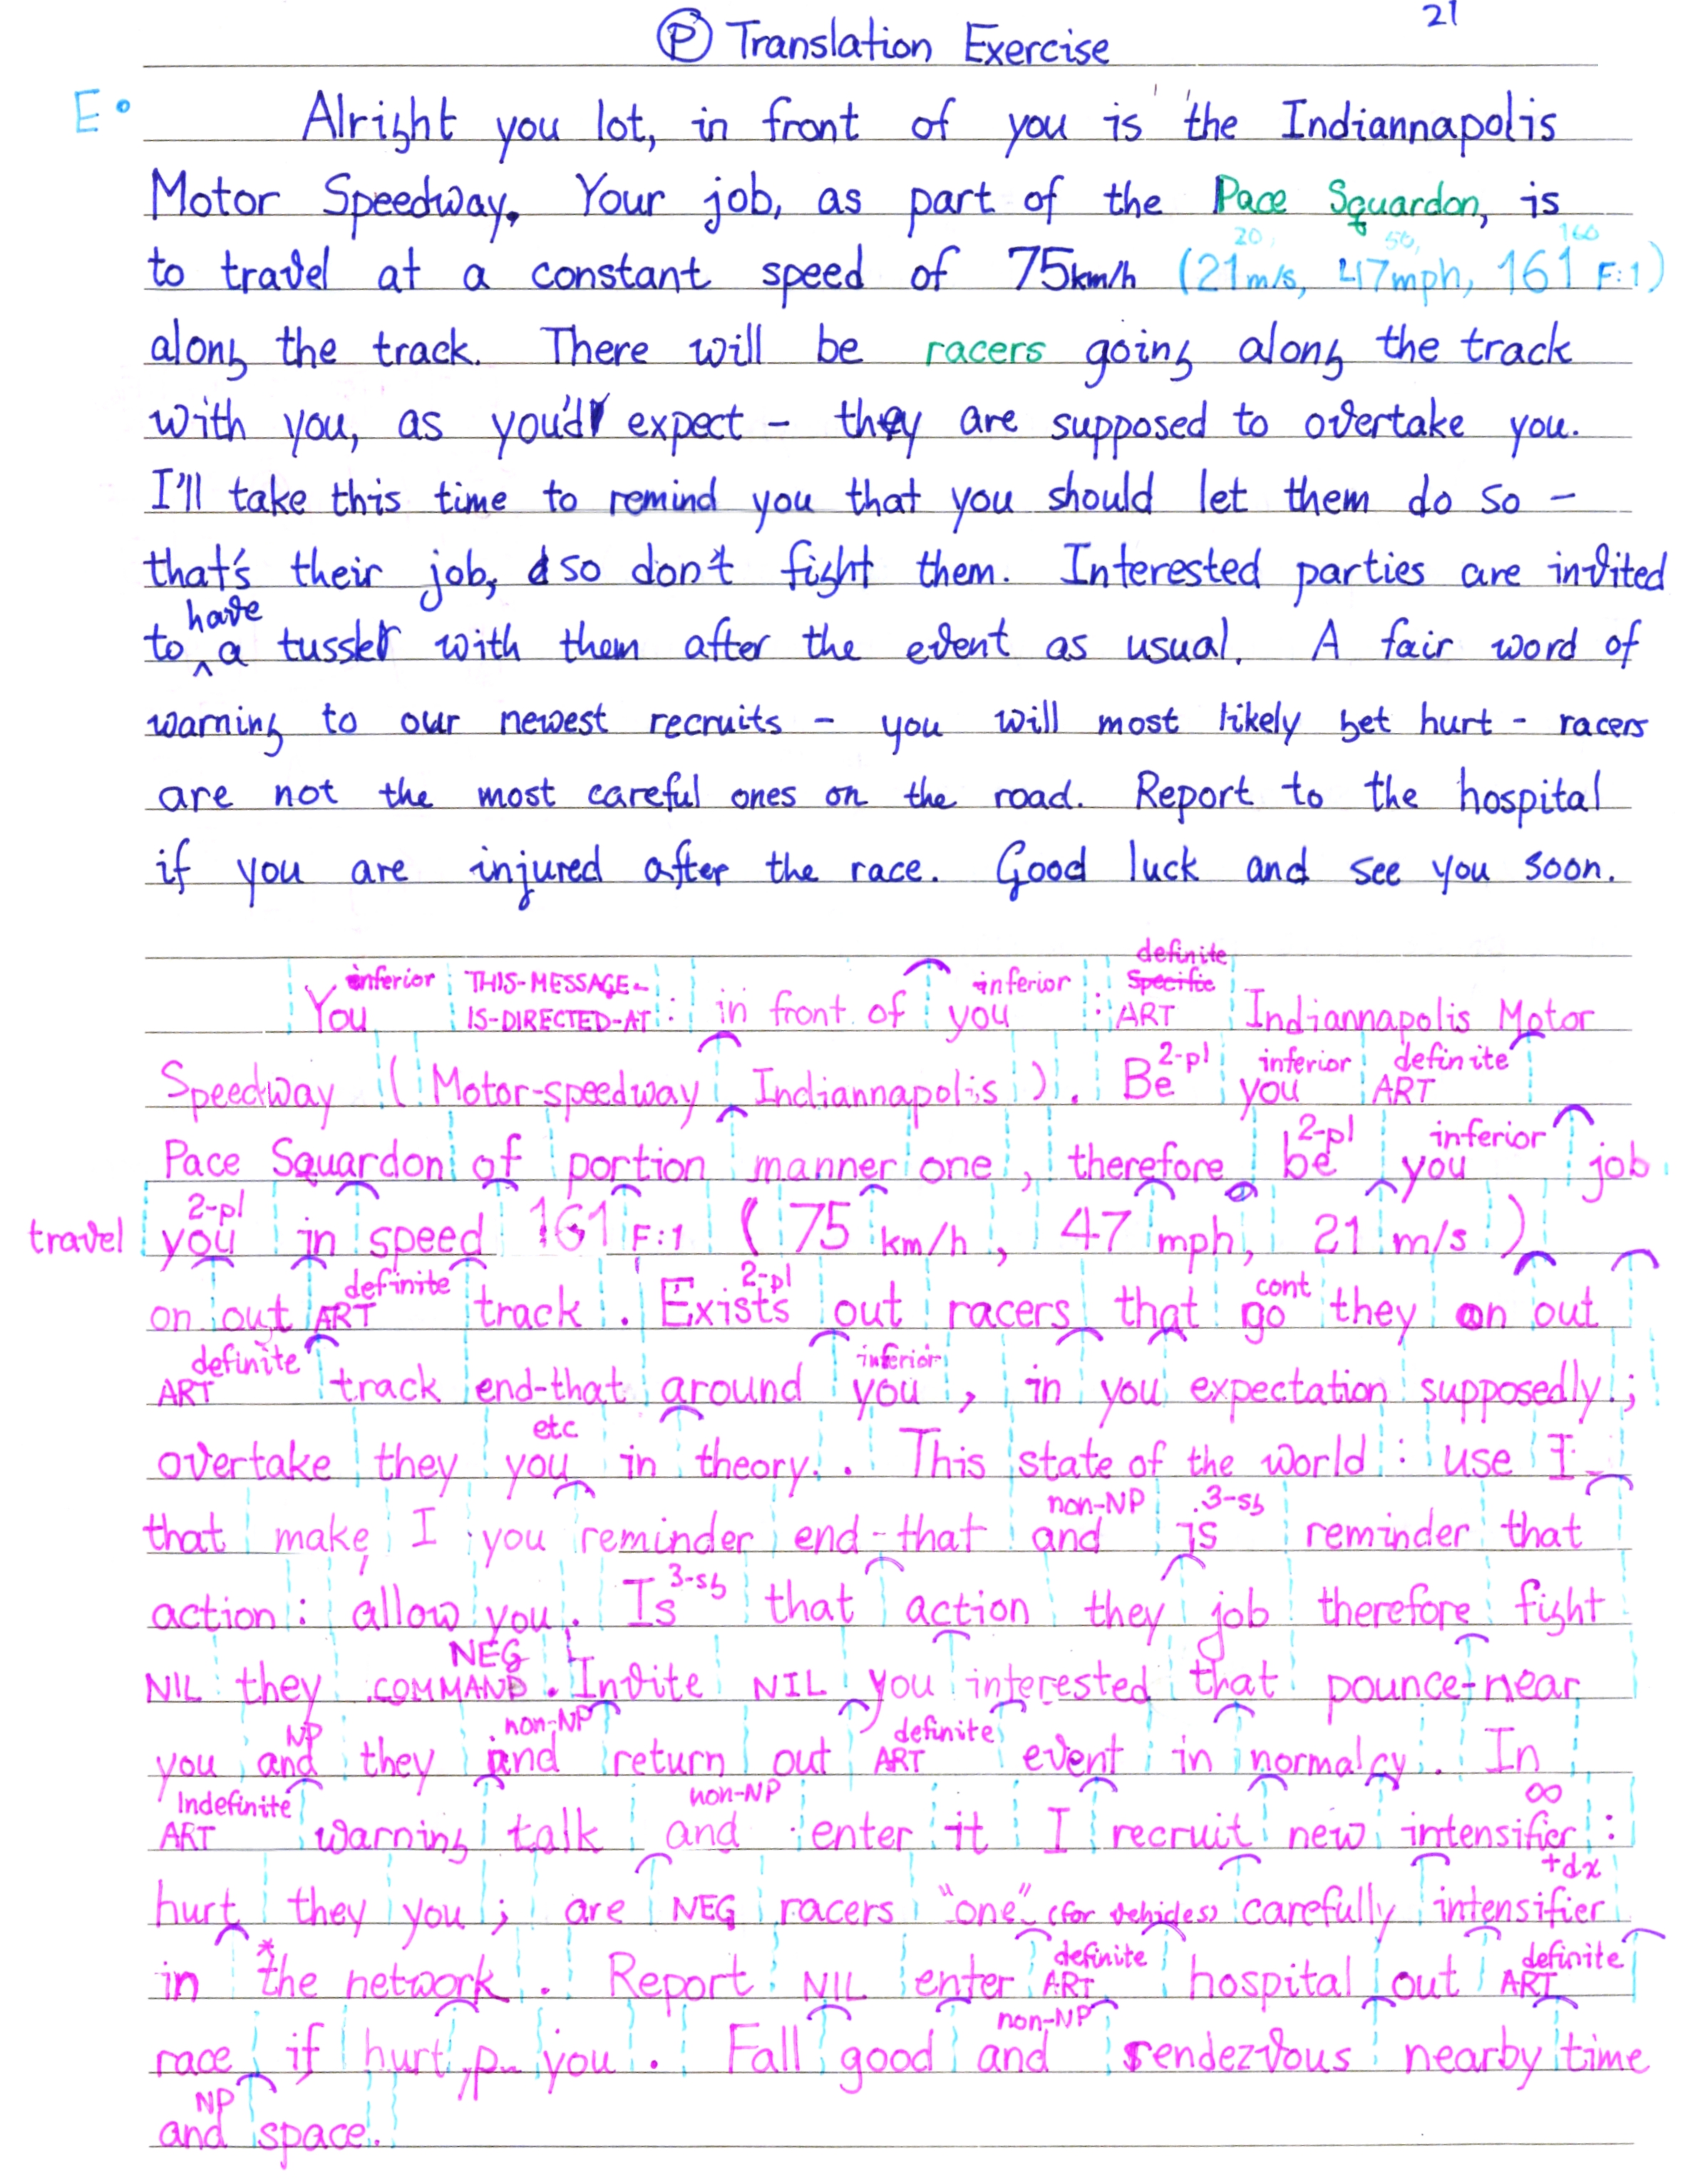 21
Ⓟ Translation Exercise
E°
Alright you lot, in front of you is the Indiannapolis
Motor Speedway. Your job, as part of the Pace Squardon, is
20, 50, 160
to travel at a constant speed of 75km/h (21m/s, 47mph, 161 F:1)
along the track. There will be racers going along the track
with you, as you'd expect - they are supposed to overtake you.
I'll take this time to remind you that you should let them do so -
that's their job, so don't fight them. Interested parties are invited
have
to ^ a tussle with them after the event as usual. A fair word of
warning to our newest recruits - you will most likely get hurt - racers
are not the most careful ones on the road. Report to the hospital
if you are injured after the race. Good luck and see you soon.
inferior THIS-MESSAGE- inferior definite Specific
You IS-DIRECTED-AT : in front of you : ART Indiannapolis Motor
2-pl inferior definite
Speedway ( Motor-speedway Indiannapolis ). Be you ART
2-pl inferior
Pace Squardon of portion manner one, therefore be you job
2-pl
travel you in speed 161 F:1 ( 75 km/h, 47 mph, 21 m/s )
definite 2-pl cont
on out ART track. Exists out racers that go they on out
definite inferior
ART track end-that around you, in you expectation supposedly;
etc
overtake they you in theory. . This state of the world : use I
non-NP 3-sg
that make I you reminder end-that and is reminder that
3-sg
action: allow you. Is that action they job therefore fight
NEG
NIL they COMMAND. Invite NIL you interested that pounce-near
NP non-NP definite
you and they and return out ART event in normalcy. In
Indefinite non-NP ∞
ART warning talk and enter it I recruit new intensifier :
+dx
hurt they you ; are NEG racers "one" (for vehicles) carefully intensifier
* definite definite
in the network. Report NIL enter ART hospital out ART
non-NP
race if hurt you. Fall good and rendezvous nearby time
NP
and space.